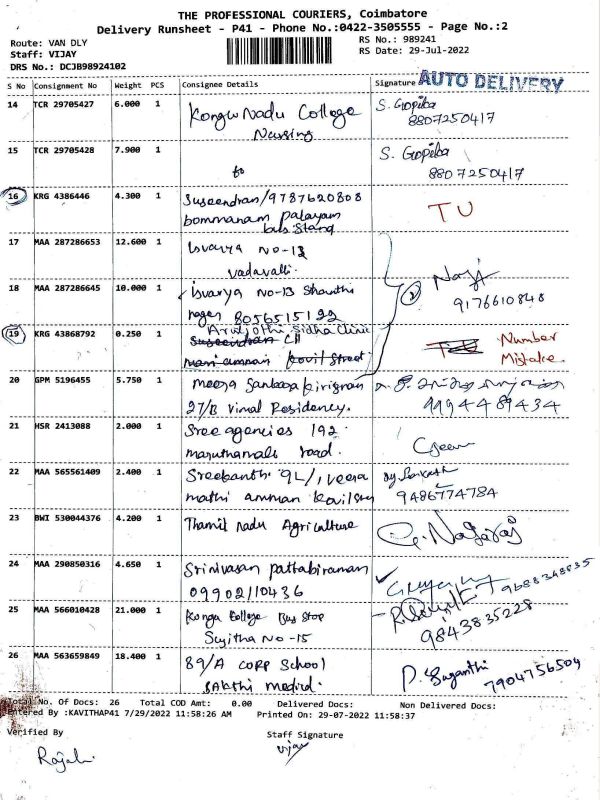 THE PROFESSIONAL COURIERS, Coimbatore
Delivery Runsheet - P41 - Phone No.:0422-3505555 - Page No.:2
Route: VAN DLY
RS No.: 989241
Staff: VIJAY
RS Date: 29-Jul-2022
DRS No.: DCJB98924102
AUTO DELIVERY
S No Consignment No Weight PCS Consignee Details Signature
14 TCR 29705427 6.000 1 Kongu Nadu College S. Gopika
Nursing 8807250417
15 TCR 29705428 7.900 1 to S. Gopika
8807250417
16 KRG 4386446 4.300 1 Suseendran/9787620808 TU
bommanam palayam
bus stand
17 MAA 287286653 12.600 1 Isvarya NO-13
vadavalli.
18 MAA 287286645 10.000 1 Isvarya NO-13 Shanthi
nager 8056515122 9176610848
19 KRG 43868792 0.250 1 Aruljothi Sidha Clinic Number
Suseendran CH Mistake
mariamman kovil Street
20 GPM 5196455 5.750 1 meera
27/B Vimal Residency. 9994489434
21 HSR 2413088 2.000 1 Sree agencies 192
maruthamalai road.
22 MAA 565561409 2.400 1 Sreekanth 9L/1, veera
mathi amman kovil 9486774784
23 BWI 530044376 4.200 1 Thamil nadu Agriculture G. Nagaraj
24 MAA 290850316 4.650 1 Srinivasan pattabiraman
09902110436
25 MAA 566010428 21.000 1 Konga College Bus Stop
Sujitha NO-15 9843835228
26 MAA 563659849 18.400 1 89/A CORP School P. Suganthi
Sakthi medical. 7904756504
Total No. Of Docs: 26 Total COD Amt: 0.00 Delivered Docs: Non Delivered Docs:
Entered By :KAVITHAP41 7/29/2022 11:58:26 AM Printed On: 29-07-2022 11:58:37
Verified By Staff Signature
Vijay